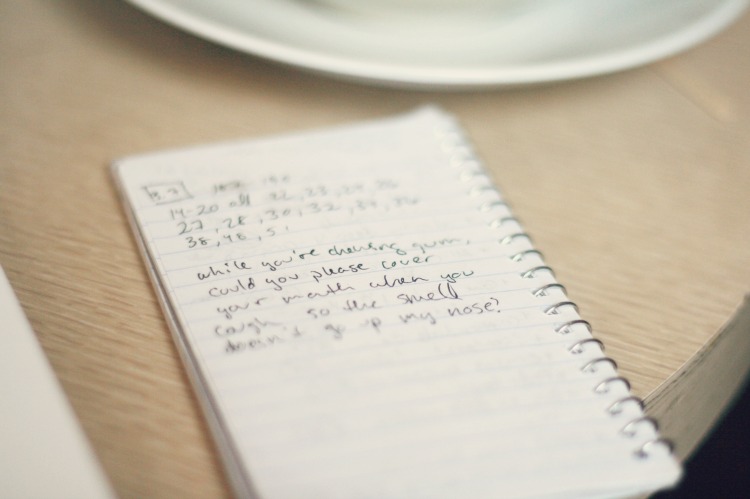 8.3
14-20 all 22, 23, 24, 26
27, 28, 30, 32, 34, 36
38, 48, 5
while you're chewing gum,
could you please cover
your mouth when you
cough so the smell
doesn't go up my nose?